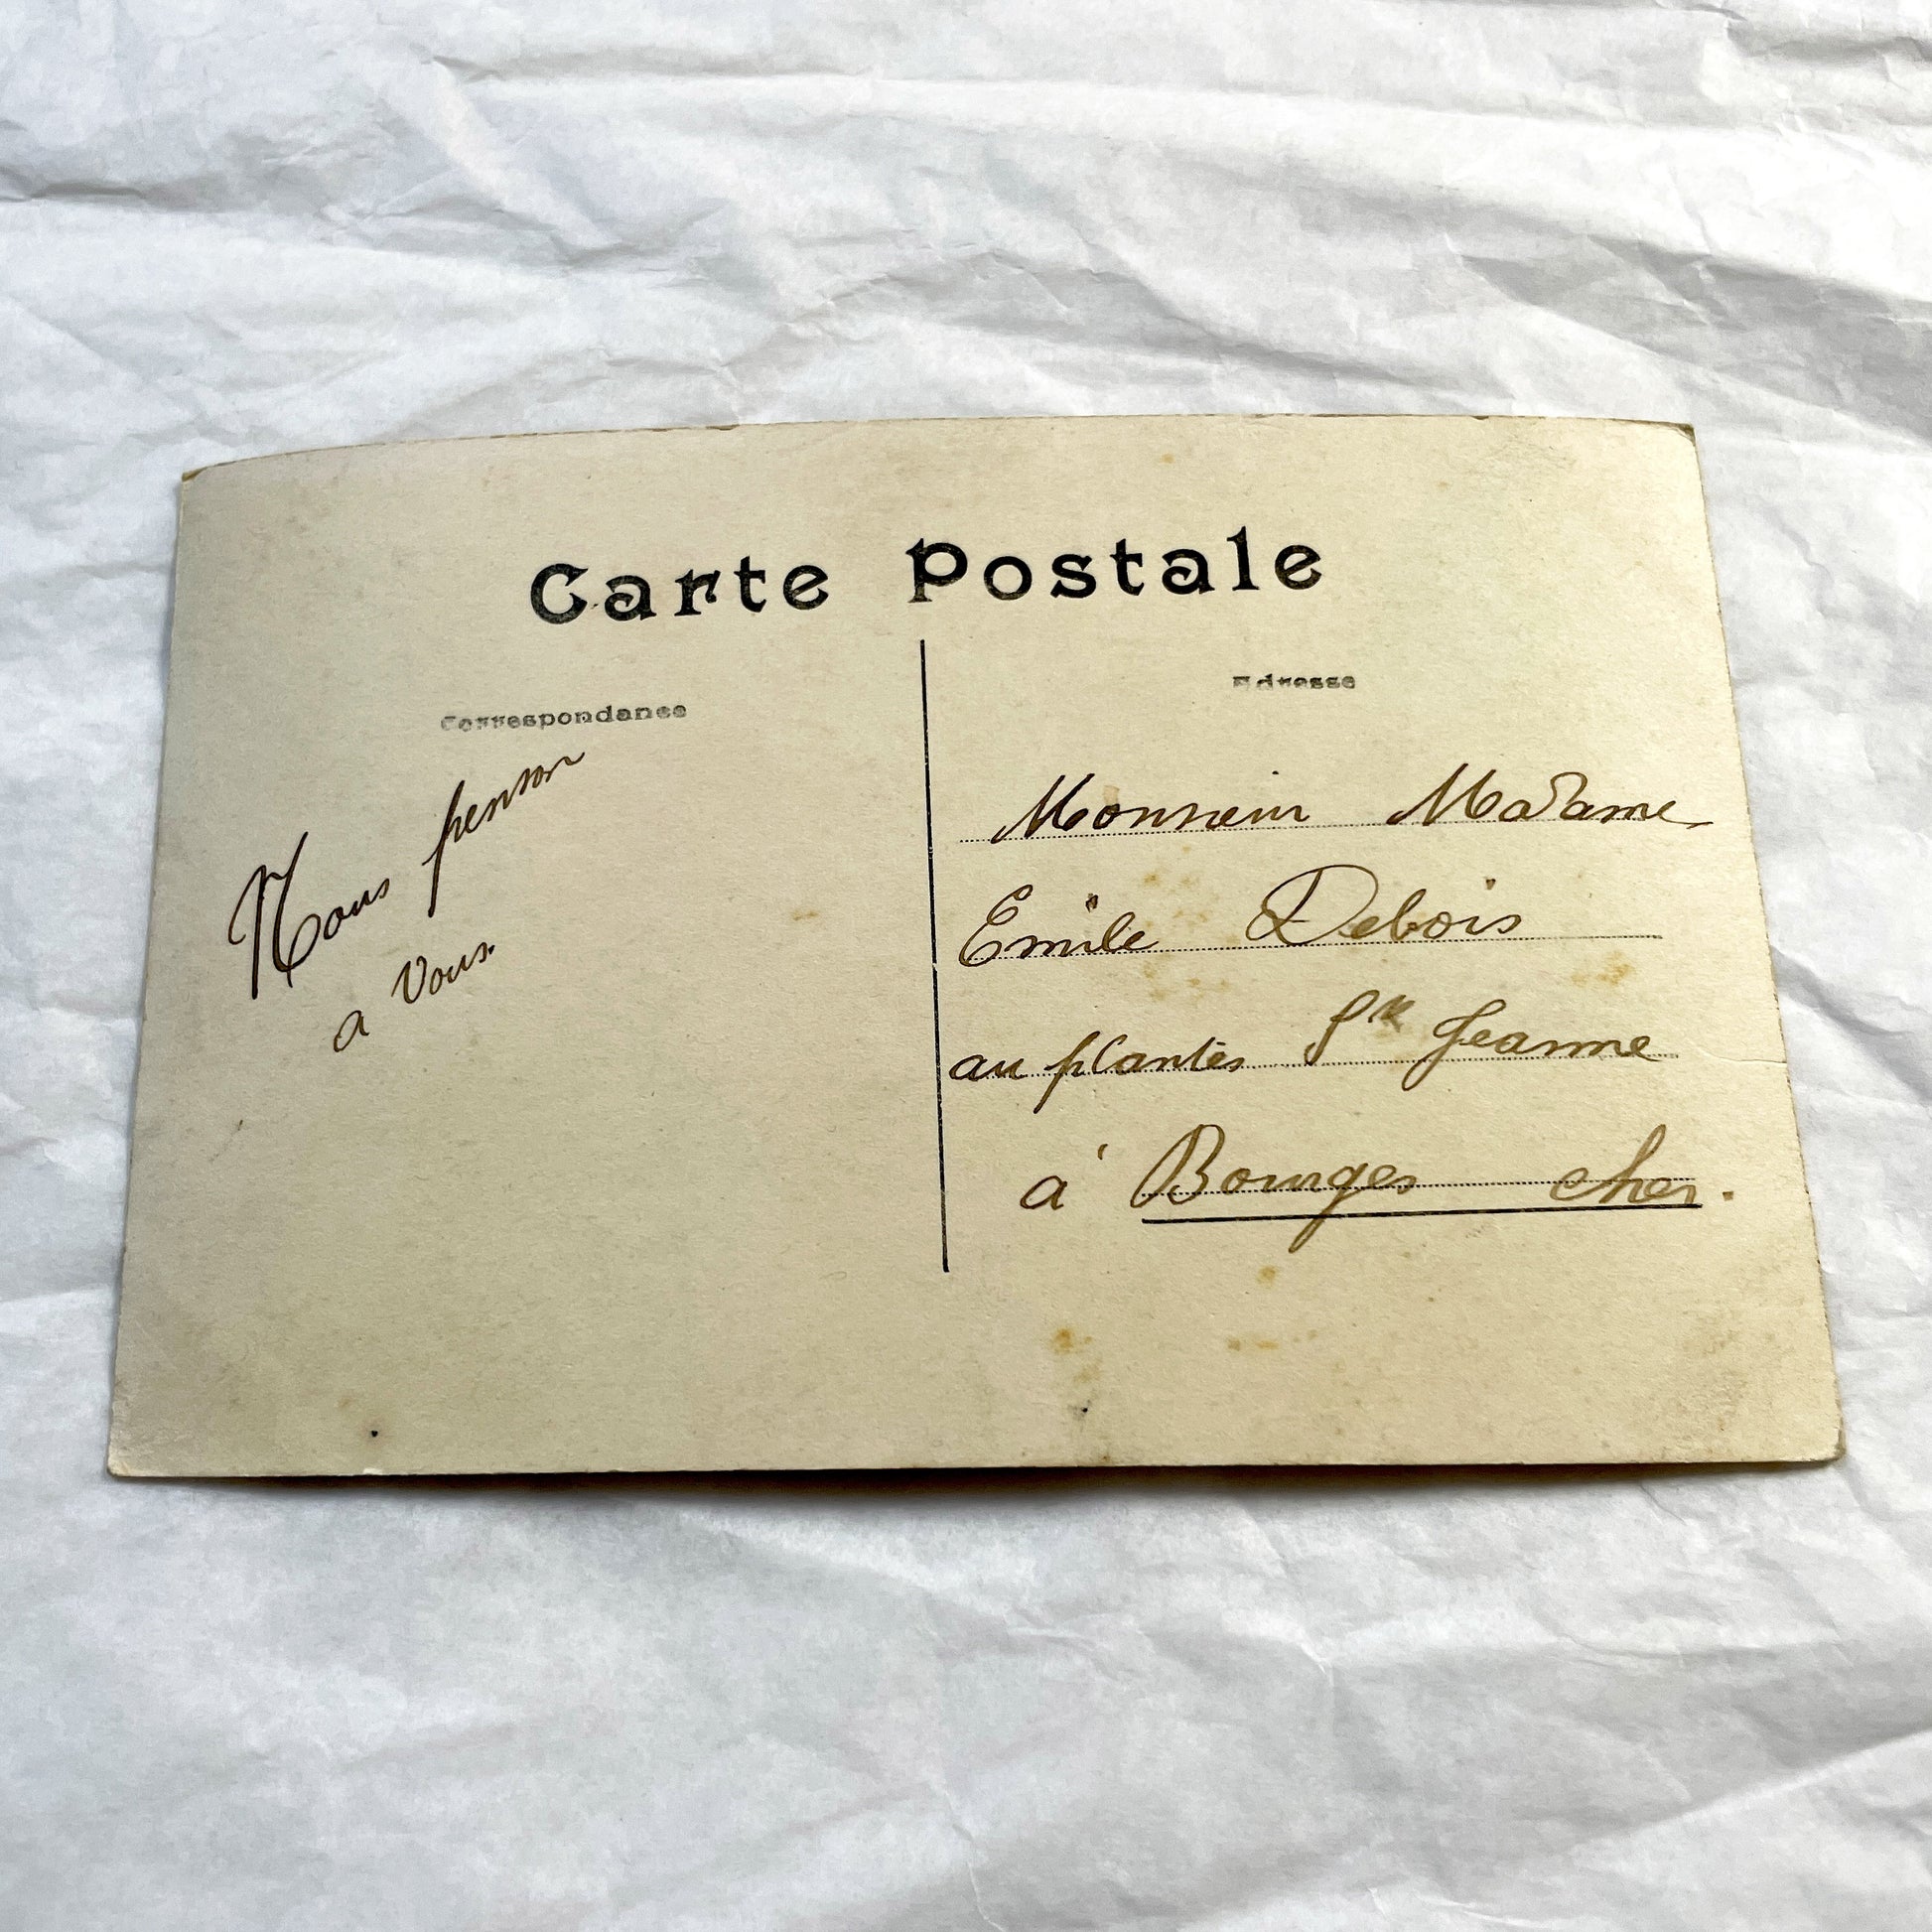 Carte Postale
Correspondance
Nous penson
a Vous.
Adresse
Monsieur Madame
Emile Debois
au plantes Ste Jeanne
à Bourges cher.